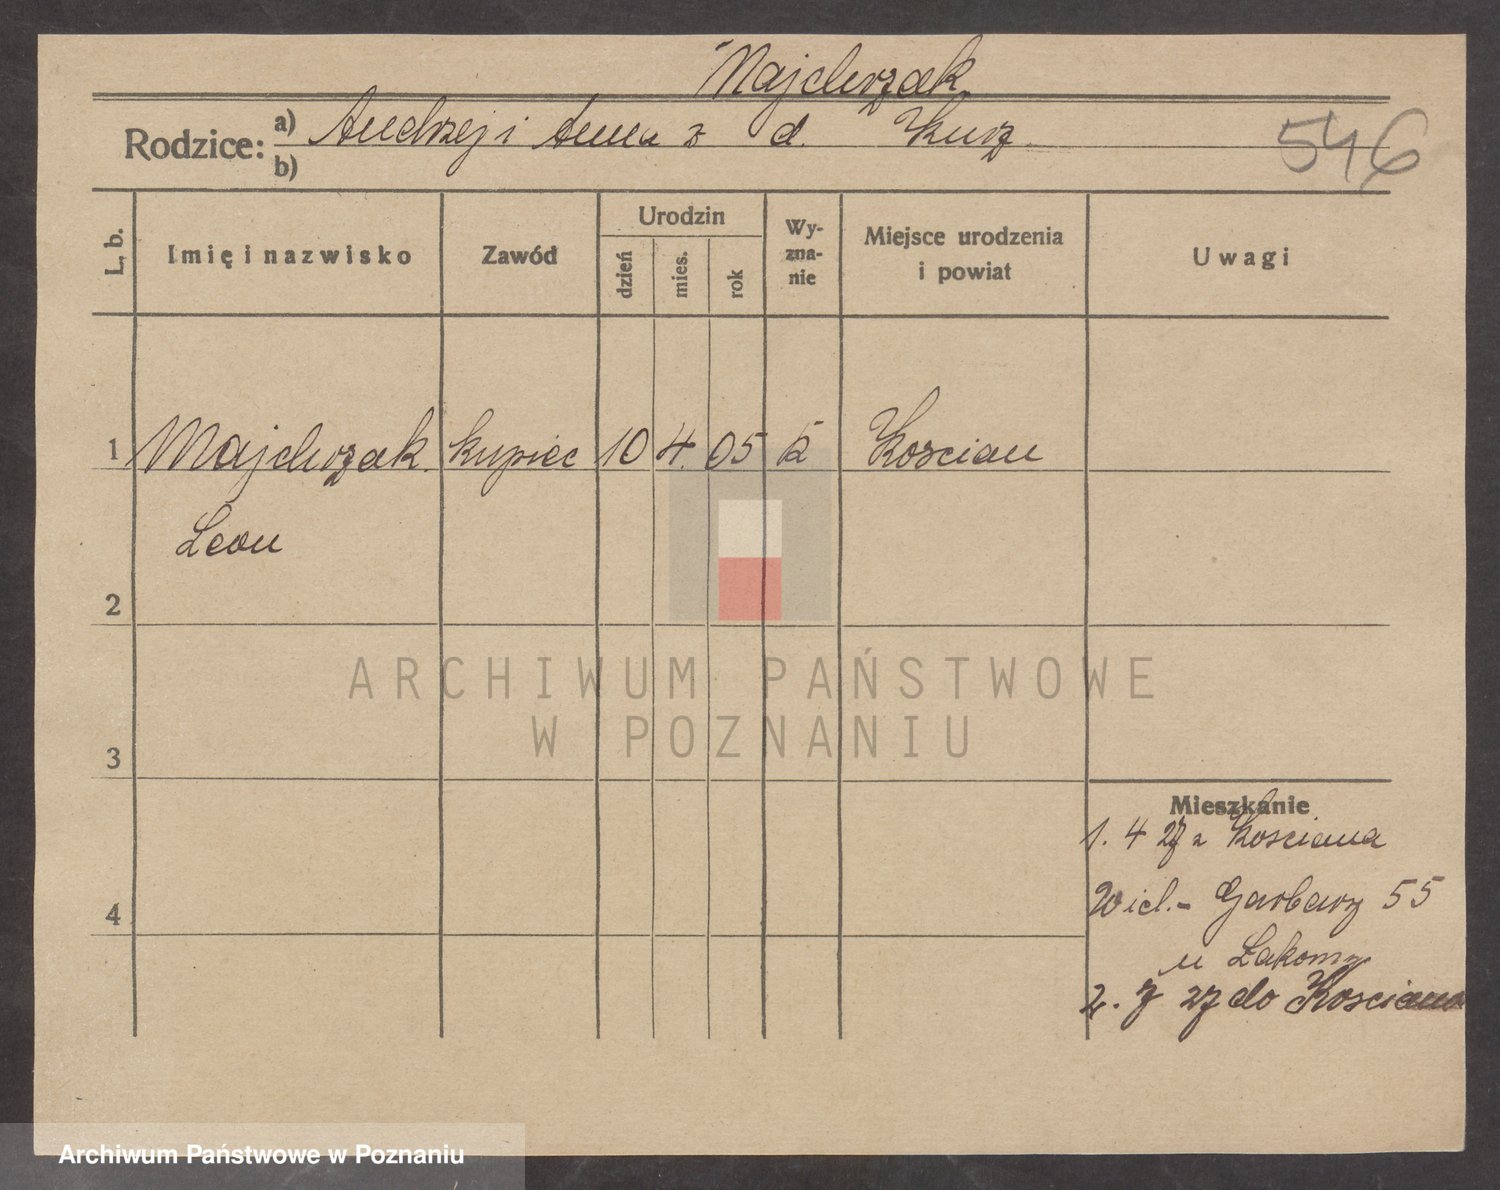 Majchrzak
Rodzice: a) Andrzej i Anna z d. Kurz
b)
546
L. b.
Imię i nazwisko
Zawód
Urodzin
dzień
mies.
rok
Wy-
zna-
nie
Miejsce urodzenia
i powiat
Uwagi
1 Majchrzak kupiec 10 4. 05 k Koscian
Leon
2
ARCHIWUM PAŃSTWOWE
W POZNANIU
3
Mieszkanie
1. 4 27 z Kosciana
Wiel.- Garbary 55
4
u Lakomy
2. 7 27 do Kosciana
Archiwum Państwowe w Poznaniu